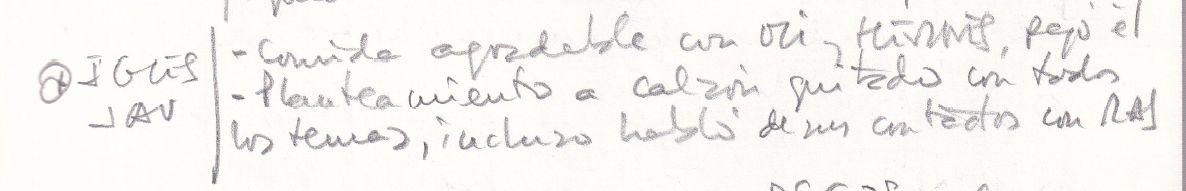 IGLES
JAV
- Comida agradable con Oli y , pagó él
- Planteamiento a calzón quitado con todos
los temas, incluso habló de sus contactos con RAJ